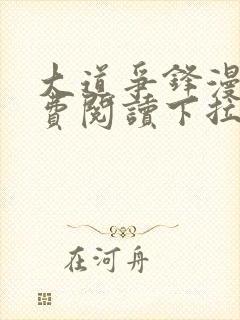 大道爭鋒漫
費閱讀下拉
在河舟